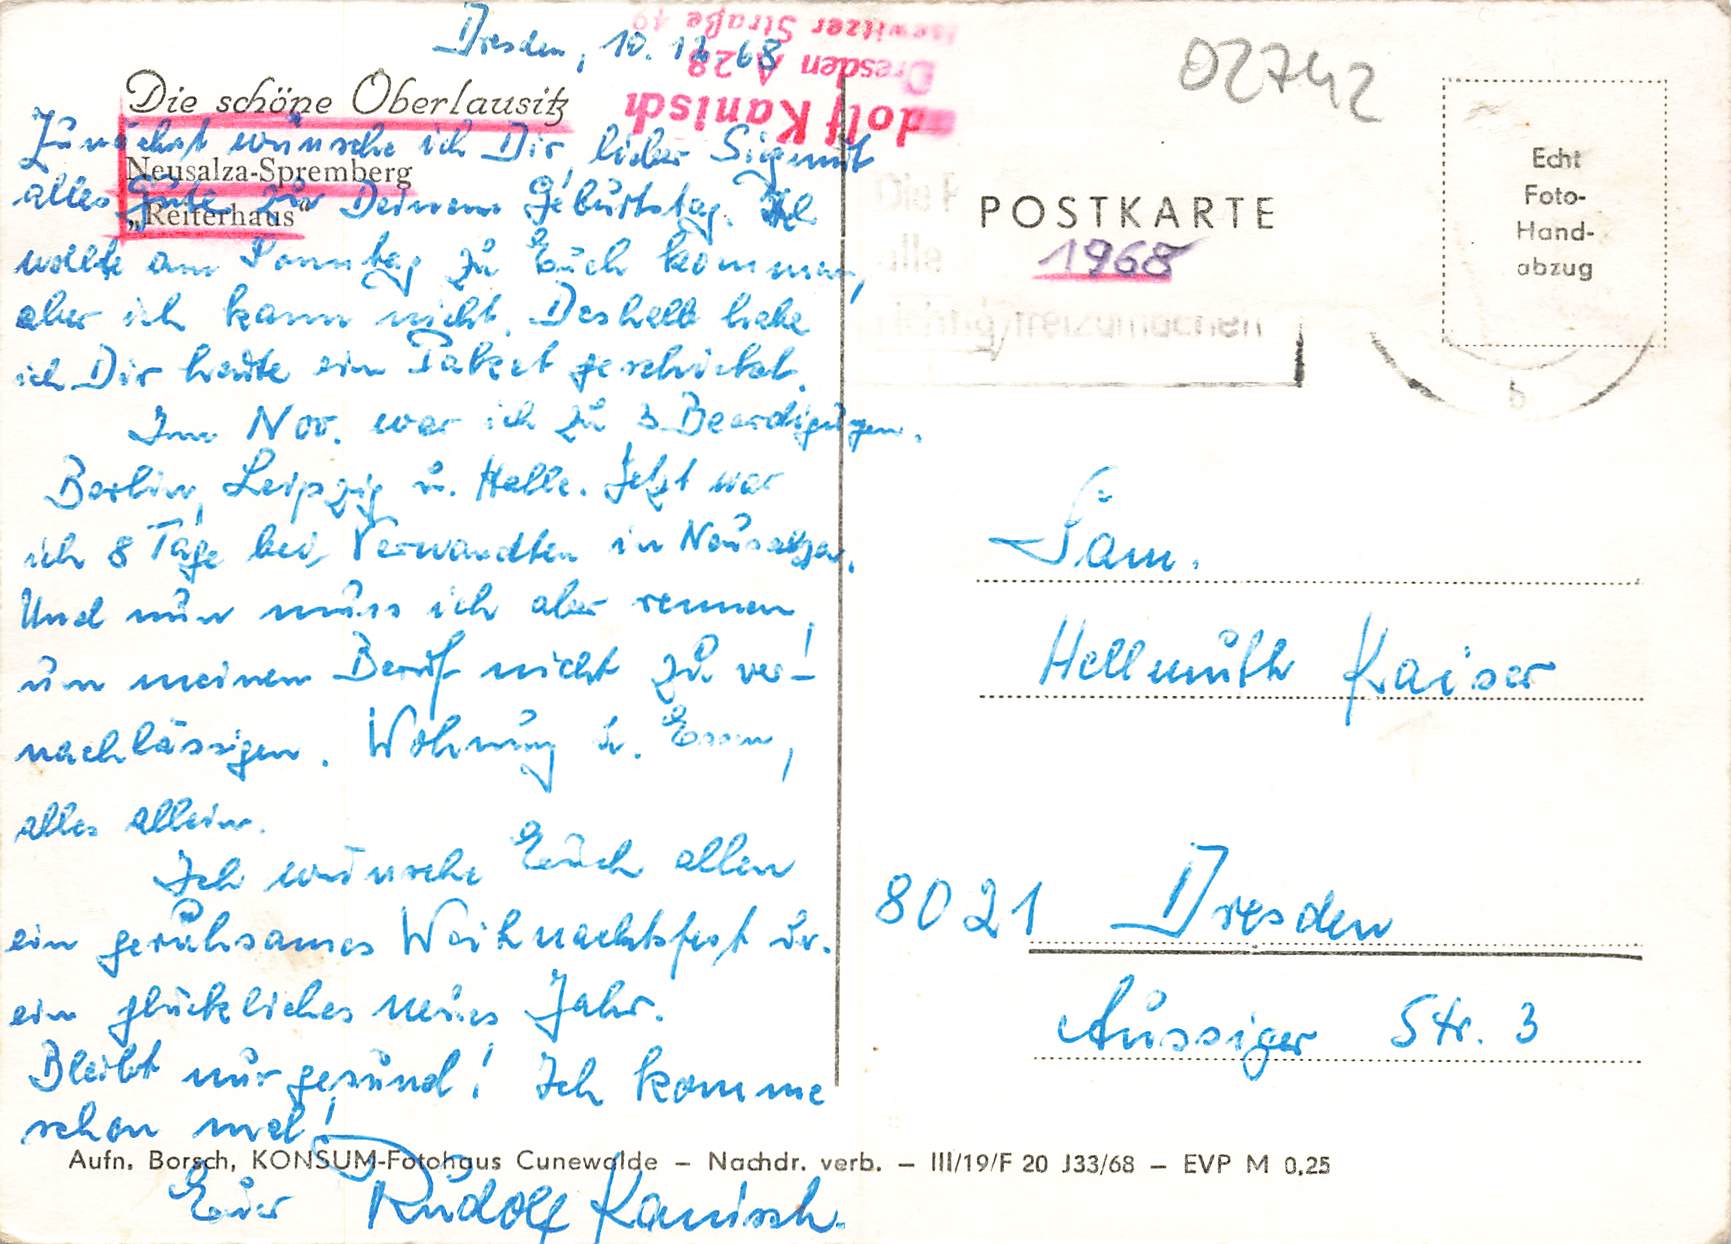 Dresden, 10. 12. 68
Die schöne Oberlausitz
Neusalza-Spremberg
„Reiterhaus“
Zunächst wünsche ich Dir, lieber Sigmut
alles Gute zu Deinem Geburtstag. Ich
wollte am Sonntag zu Euch kommen,
aber ich kann nicht. Deshalb habe
ich Dir heute ein Paket geschickt.
Im Nov. war ich zu 3 Beerdigungen.
Berlin, Leipzig u. Halle. Jetzt war
ich 8 Tage bei Verwandten in Neusalza.
Und nun muss ich aber rennen,
um meinen Beruf nicht zu ver-
nachlässigen. Wohnung u. Essen,
alles allein.
Ich wünsche Euch allen
ein geruhsames Weihnachtsfest u.
ein glückliches neues Jahr.
Bleibt nur gesund! Ich komme
schon mal!
Euer Rudolf Kanisch.
dolf Kanisch
Dresden A 28
ewitzer Straße 49
02742
POSTKARTE
1968
Echt
Foto-
Hand-
abzug
richtig freizumachen
b
Fam.
Hellmuth Kaiser
8021 Dresden
Aussiger Str. 3
Aufn. Borsch, KONSUM-Fotohaus Cunewalde – Nachdr. verb. – III/19/F 20 J33/68 – EVP M 0,25